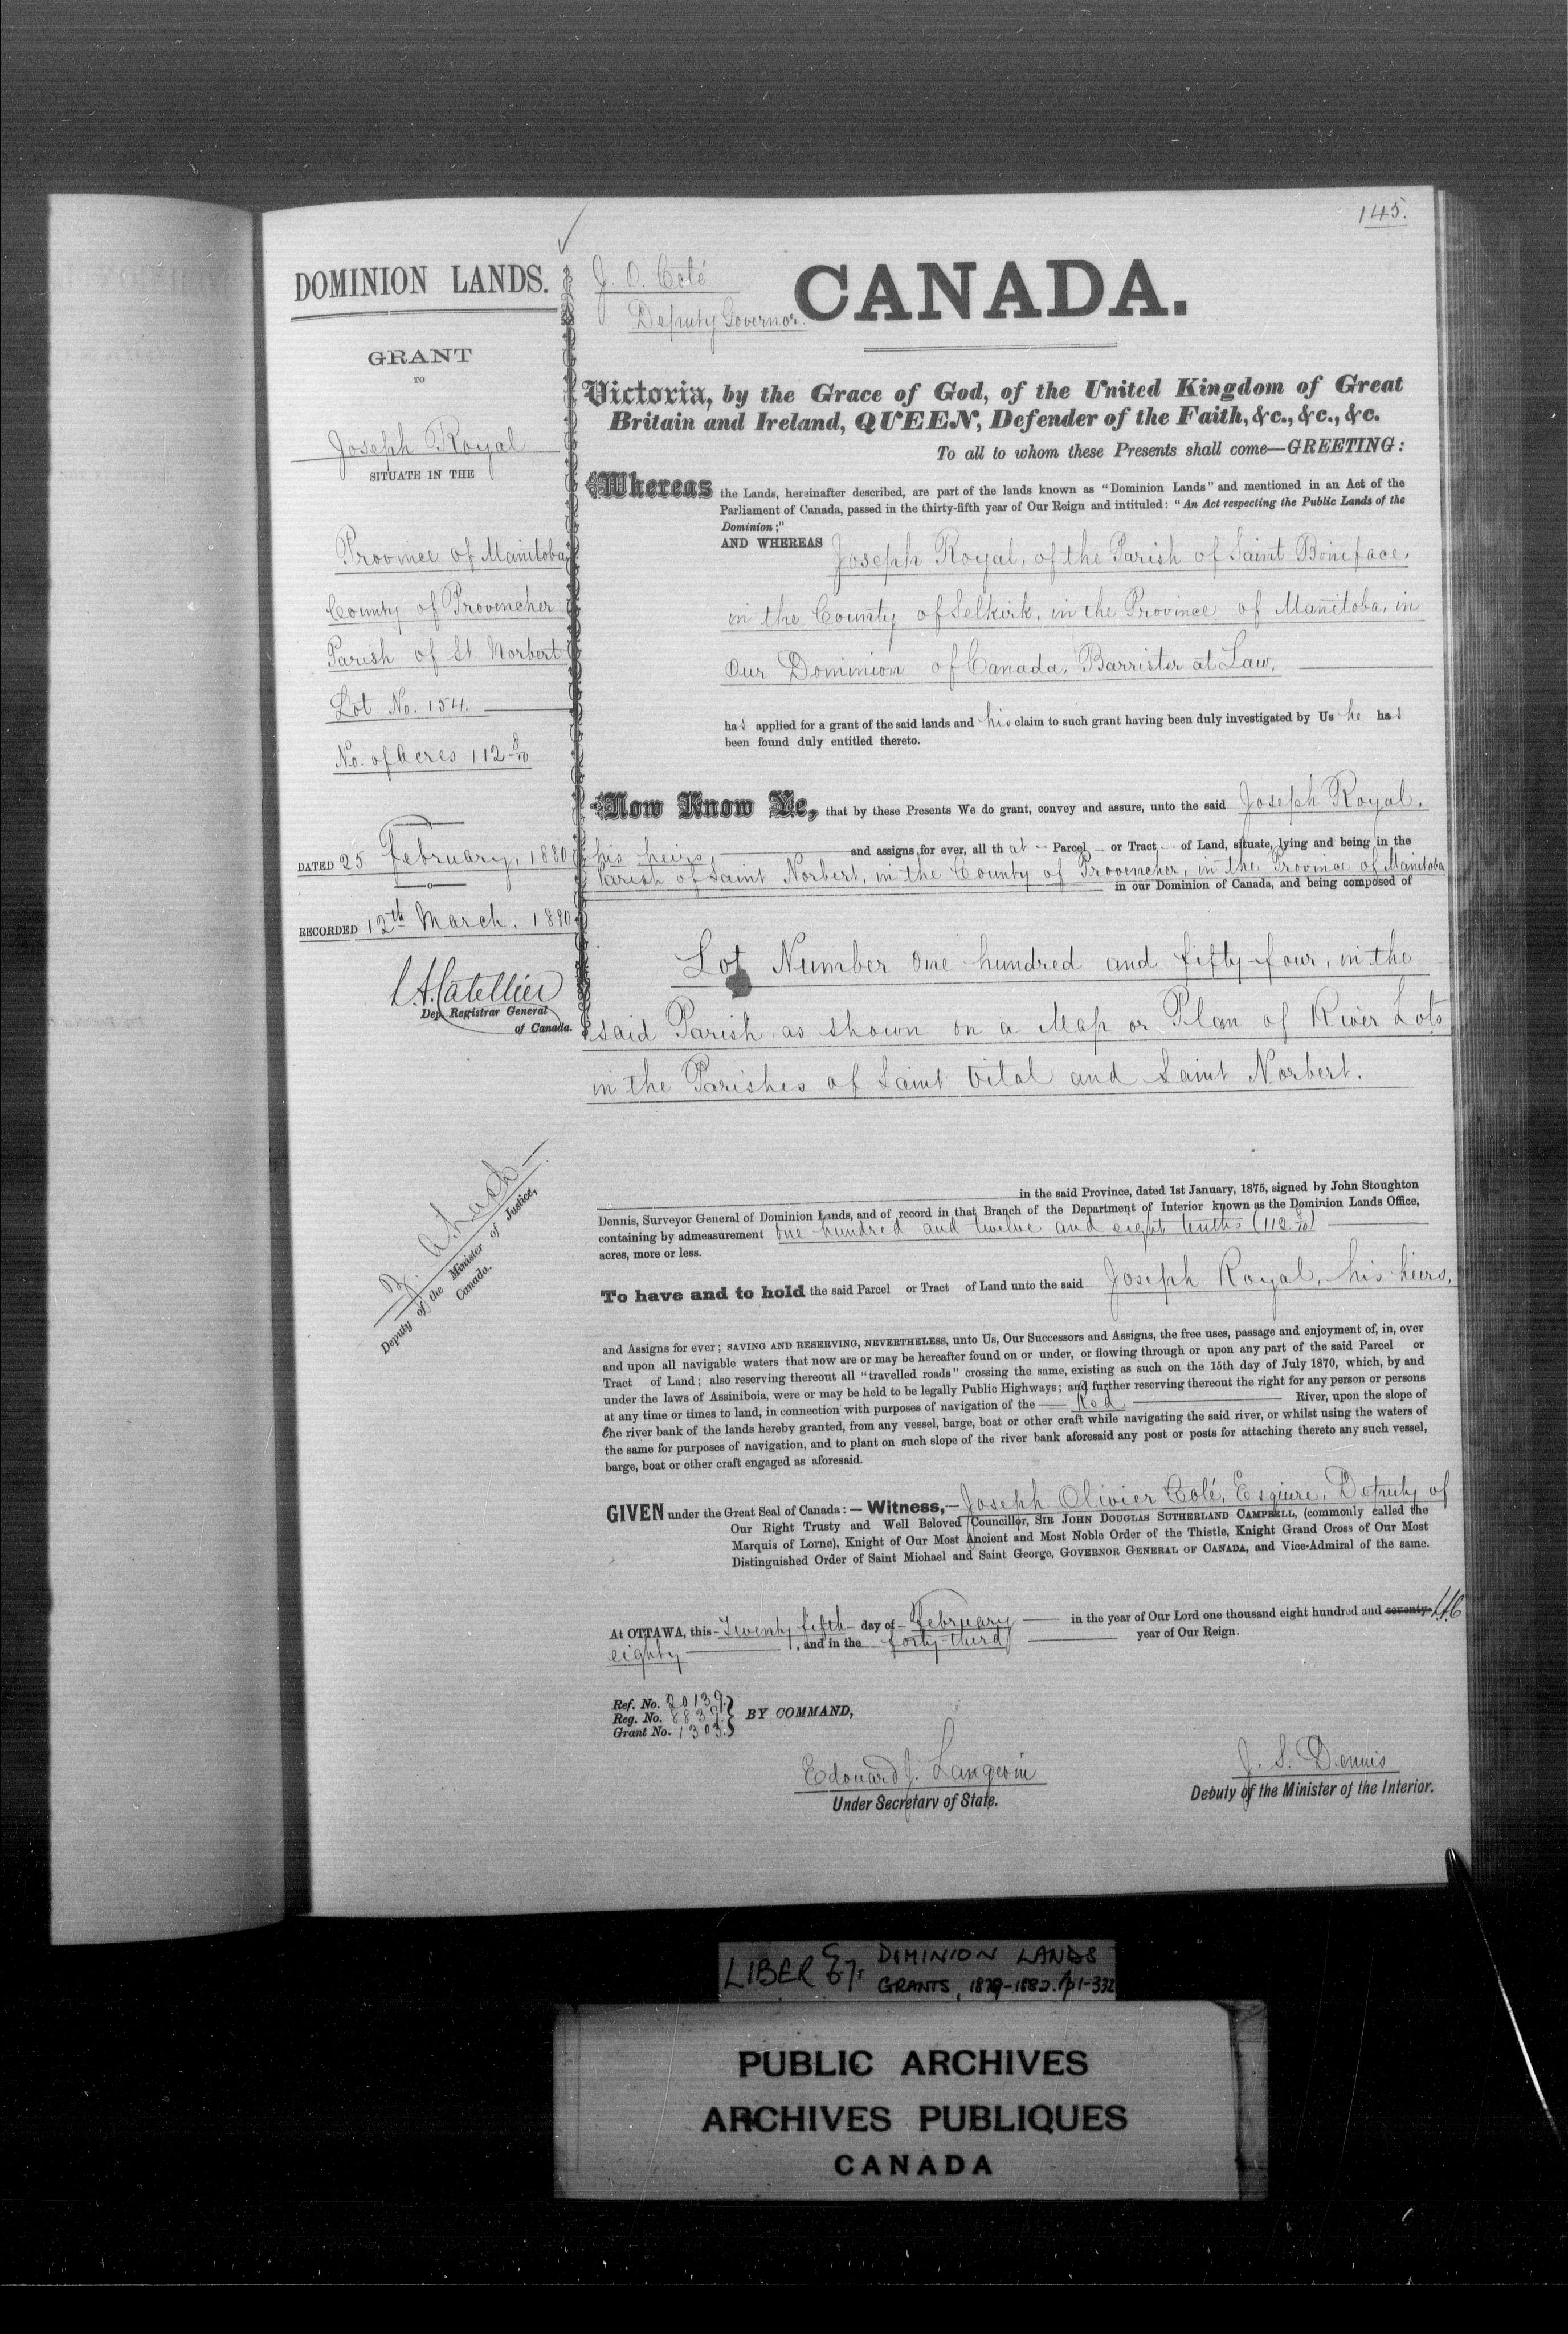 145.
DOMINION LANDS.
GRANT
TO
Joseph Royal
SITUATE IN THE
Province of Manitoba
County of Provencher
Parish of St. Norbert
Lot No. 154.
No. of Acres 112 8/10
DATED 25 February, 1880
RECORDED 12th March, 1880
L.A. Catellier
Dep. Registrar General
of Canada.
Z. A. Lash
Deputy of the Minister of Justice,
Canada.
J. O. Coté
Deputy Governor.
CANADA.
Victoria, by the Grace of God, of the United Kingdom of Great
Britain and Ireland, QUEEN, Defender of the Faith, &c., &c., &c.
To all to whom these Presents shall come—GREETING:
Whereas the Lands, hereinafter described, are part of the lands known as "Dominion Lands" and mentioned in an Act of the
Parliament of Canada, passed in the thirty-fifth year of Our Reign and intituled: "An Act respecting the Public Lands of the
Dominion;"
AND WHEREAS Joseph Royal, of the Parish of Saint Boniface,
in the County of Selkirk, in the Province of Manitoba, in
Our Dominion of Canada, Barrister at Law,
has applied for a grant of the said lands and his claim to such grant having been duly investigated by Us he has
been found duly entitled thereto.
Now Know Ye, that by these Presents We do grant, convey and assure, unto the said Joseph Royal,
his heirs, and assigns for ever, all that Parcel or Tract of Land, situate, lying and being in the
Parish of Saint Norbert, in the County of Provencher, in the Province of Manitoba
in our Dominion of Canada, and being composed of
Lot Number one hundred and fifty-four, in the
said Parish as shown on a Map or Plan of River Lots
in the Parishes of Saint Vital and Saint Norbert.
in the said Province, dated 1st January, 1875, signed by John Stoughton
Dennis, Surveyor General of Dominion Lands, and of record in that Branch of the Department of Interior known as the Dominion Lands Office,
containing by admeasurement one hundred and twelve and eight tenths (112 8/10)
acres, more or less.
To have and to hold the said Parcel or Tract of Land unto the said Joseph Royal, his heirs,
and Assigns for ever; SAVING AND RESERVING, NEVERTHELESS, unto Us, Our Successors and Assigns, the free uses, passage and enjoyment of, in, over
and upon all navigable waters that now are or may be hereafter found on or under, or flowing through or upon any part of the said Parcel or
Tract of Land; also reserving thereout all "travelled roads" crossing the same, existing as such on the 15th day of July 1870, which, by and
under the laws of Assiniboia, were or may be held to be legally Public Highways; and further reserving thereout the right for any person or persons
at any time or times to land, in connection with purposes of navigation of the Red River, upon the slope of
the river bank of the lands hereby granted, from any vessel, barge, boat or other craft while navigating the said river, or whilst using the waters of
the same for purposes of navigation, and to plant on such slope of the river bank aforesaid any post or posts for attaching thereto any such vessel,
barge, boat or other craft engaged as aforesaid.
GIVEN under the Great Seal of Canada:—Witness,—Joseph Olivier Coté, Esquire, Deputy of
Our Right Trusty and Well Beloved Councillor, SIR JOHN DOUGLAS SUTHERLAND CAMPBELL, (commonly called the
Marquis of Lorne), Knight of Our Most Ancient and Most Noble Order of the Thistle, Knight Grand Cross of Our Most
Distinguished Order of Saint Michael and Saint George, GOVERNOR GENERAL OF CANADA, and Vice-Admiral of the same.
At OTTAWA, this Twenty fifth day of February in the year of Our Lord one thousand eight hundred and seventy-
eighty, and in the forty-third year of Our Reign.
Ref. No. 20139.
Reg. No. 8839.
Grant No. 1303.
BY COMMAND,
Edouard J. Langevin
Under Secretary of State.
J. S. Dennis
Deputy of the Minister of the Interior.
LIBER DOMINION LANDS
GRANTS, 1879-1882. pp1-332
PUBLIC ARCHIVES
ARCHIVES PUBLIQUES
CANADA